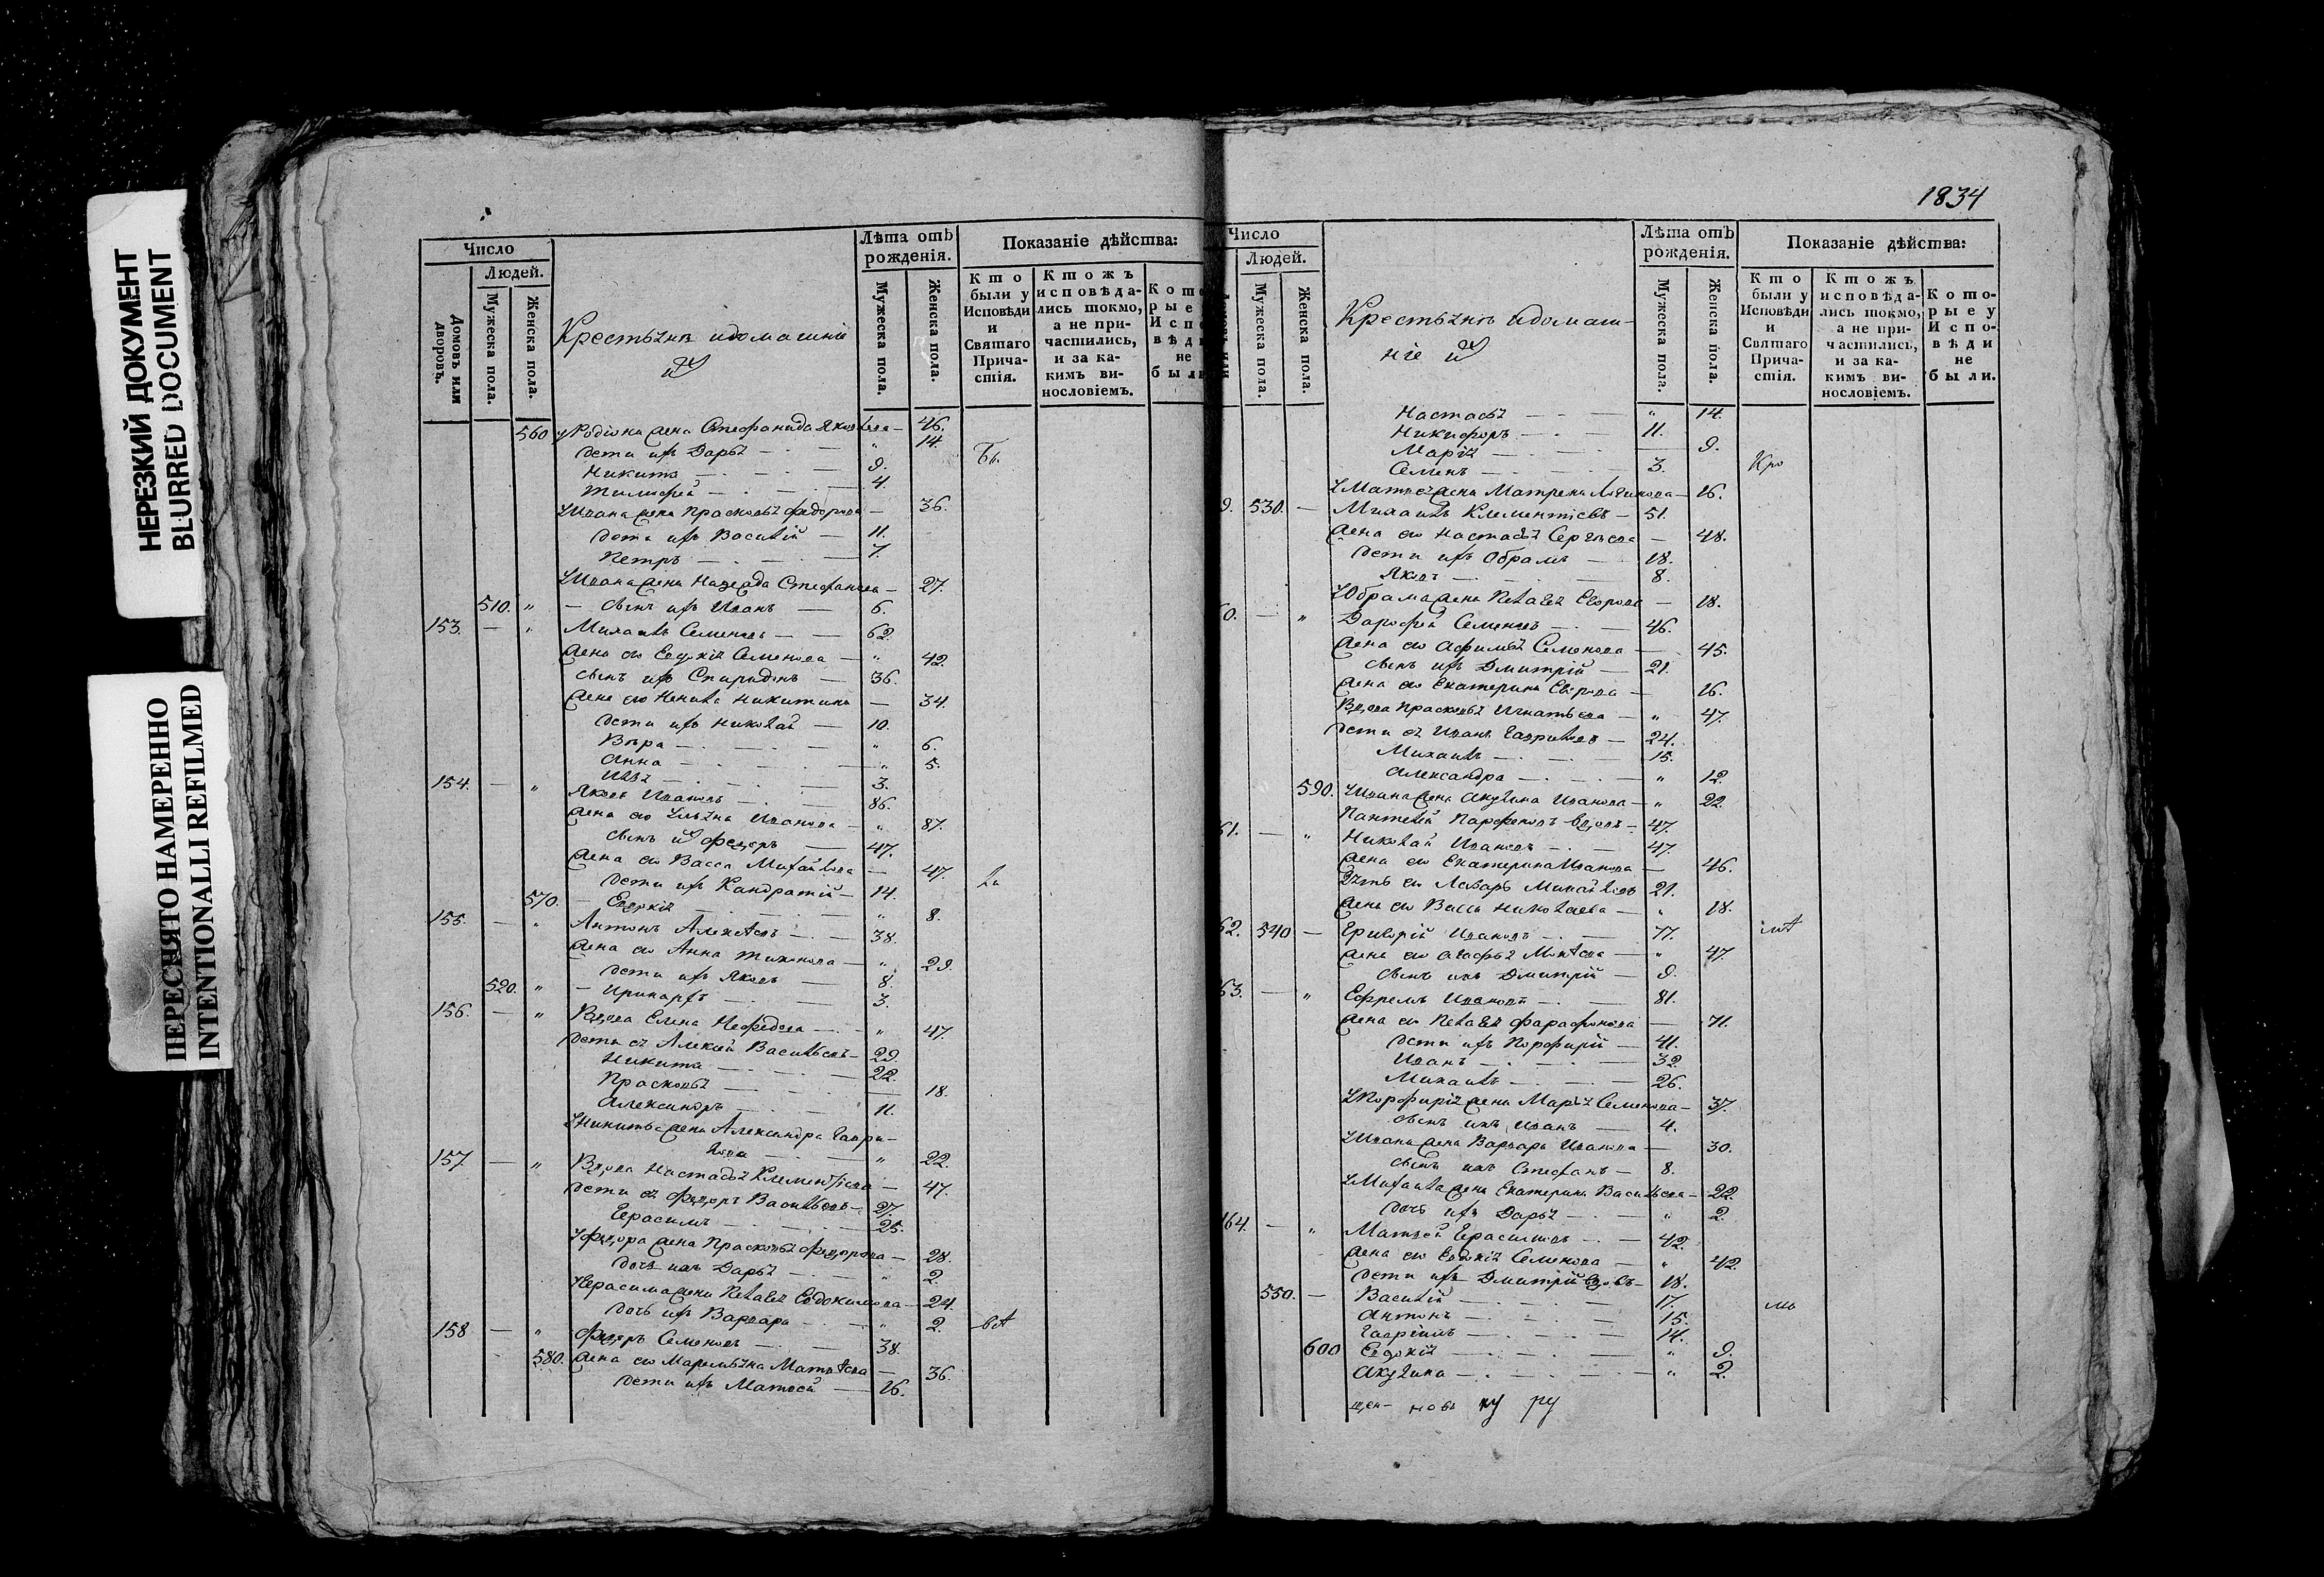 НЕРЕЗКИЙ ДОКУМЕНТ
BLURRED DOCUMENT
ПЕРЕСНЯТО НАМЕРЕННО
INTENTIONALLI REFILMED
Число
Людей.
Домовъ или дворовъ.
Мужеска пола.
Женска пола.
Крестьяня идомашніе
Лѣта отъ рожденія.
Мужеска пола.
Женска пола.
Показаніе дѣйства:
Кто были у Исповѣди и Святаго Причастія.
Ктожъ исповѣдались токмо, а не причастились, и за какимъ винословіемъ.
560 у Родіона жена Стефанида Яковлева — 46.
Дети ихъ Дарья — " 14.
Никита — 9.
Тимофей — 4.
УИвана жена Прасковья Федорова — 36.
Дети ихъ Василій — 11.
Петръ — 7.
УИвана жена Надежда Стефанова — 27.
510. " — сынъ ихъ Иванъ — 6.
153. — " Михаилъ Семеновъ — 62.
Жена его Евдокія Семенова — " 42.
сынъ ихъ Спиридонъ — 36.
Жена его Ненила Никитина — 34.
Дети ихъ Николай — 10.
Вѣра — " 6.
Анна — " 5.
Илья — 3.
154. — " Яковъ Ивановъ — 86.
Жена его Ульяна Иванова — " 87.
сынъ их Федоръ — 47.
Жена его Васса Михайлова — 47.
Дети ихъ Кандратій — 14.
570. — Евдокія — " 8.
155. — " Антонъ Алексѣевъ — 38.
Жена его Анна Тихонова — " 29.
Дети ихъ Яковъ — 8.
520. " — Иринархъ — 3.
156. — " Вдова Елена Нефедова — " 47.
Дети ея Алексей Васильевъ — 29.
Никита — 22.
Прасковья — 18.
Александръ — 11.
УНикиты жена Александра Гаври-
лова — " 22.
157. — " Вдова Настасья Клементіева — 47.
Дети ея Федоръ Васильевъ — 27.
Герасимъ — 25.
УФедора жена Прасковья Федорова — 28.
дочь ихъ Дарья — " 2.
УГерасима жена Пелагея Евдокимова — 24.
дочь ихъ Варвара — " 2.
158 — " Федоръ Семеновъ — 38.
580. Жена его Маремьяна Матвѣева — 36.
Дети ихъ Матвей — 16.
1834
Число
Людей.
Мужеска пола.
Женска пола.
Крестьянъ идомаш-
ніе
Лѣта отъ рожденія.
Мужеска пола.
Женска пола.
Показаніе дѣйства:
Кто были у Исповѣди и Святаго Причастія.
Ктожъ исповѣдались токмо, а не причастились, и за какимъ винословіемъ.
Которые у Исповѣди не были.
Настасья — " 14.
Никифоръ — 11.
Марія — 9.
Семенъ — 3.
УМатвея жена Матрена Логинова — 16.
9. 530. — Михаилъ Клементіевъ — 51.
Жена его Настасья Сергѣева — 48.
Дети ихъ Обрамъ — 18.
Яковъ — 8.
УОбрама жена Пелагея Егорова — 18.
0. — " Дорофей Семеновъ — 46.
Жена его Афимья Семенова — 45.
сынъ ихъ Дмитрій — 21.
Жена его Екатерина Егорова — 16.
Вдова Прасковья Игнатьева — " 47.
Дети ея Иванъ Гавриловъ — 24.
Михаилъ — 15.
Александра — " 12.
590. УИвана жена Акулина Иванова — " 22.
Пантелей Парфеновъ вдовъ — 47.
61. — " Николай Ивановъ — 47.
Жена его Екатерина Иванова — 46.
Зять его Лазарь Михайловъ 21.
Жена его Васса Николаева — " 18.
62. 540 — Григорій Ивановъ — 77.
Жена его Агафья Моисеева — " 47.
сынъ ихъ Дмитрій — 9.
63. — " Ефремъ Ивановъ — 81.
Жена его Пелагея Фарафонова — 71.
Дети ихъ Порфирій — 41.
Иванъ — 32.
Михаилъ — 26.
УПорфирія жена Марья Семенова — 37.
сынъ ихъ Иванъ — 4.
УИвана жена Варвара Иванова — 30.
сынъ ихъ Стефанъ — 8.
УМихаила жена Екатерина Васильева — 22.
дочь ихъ Дарья — " 2.
164. — " Матвей Герасимовъ — 42.
Жена его Евдокія Семенова — " 42.
Дети ихъ Дмитрій вдовъ — 18.
550. — Василій — 17.
Антонъ — 15.
Гавріилъ — 14.
600 Евдокія — " 9.
Акулина — " 2.
щен- новъ ку ру